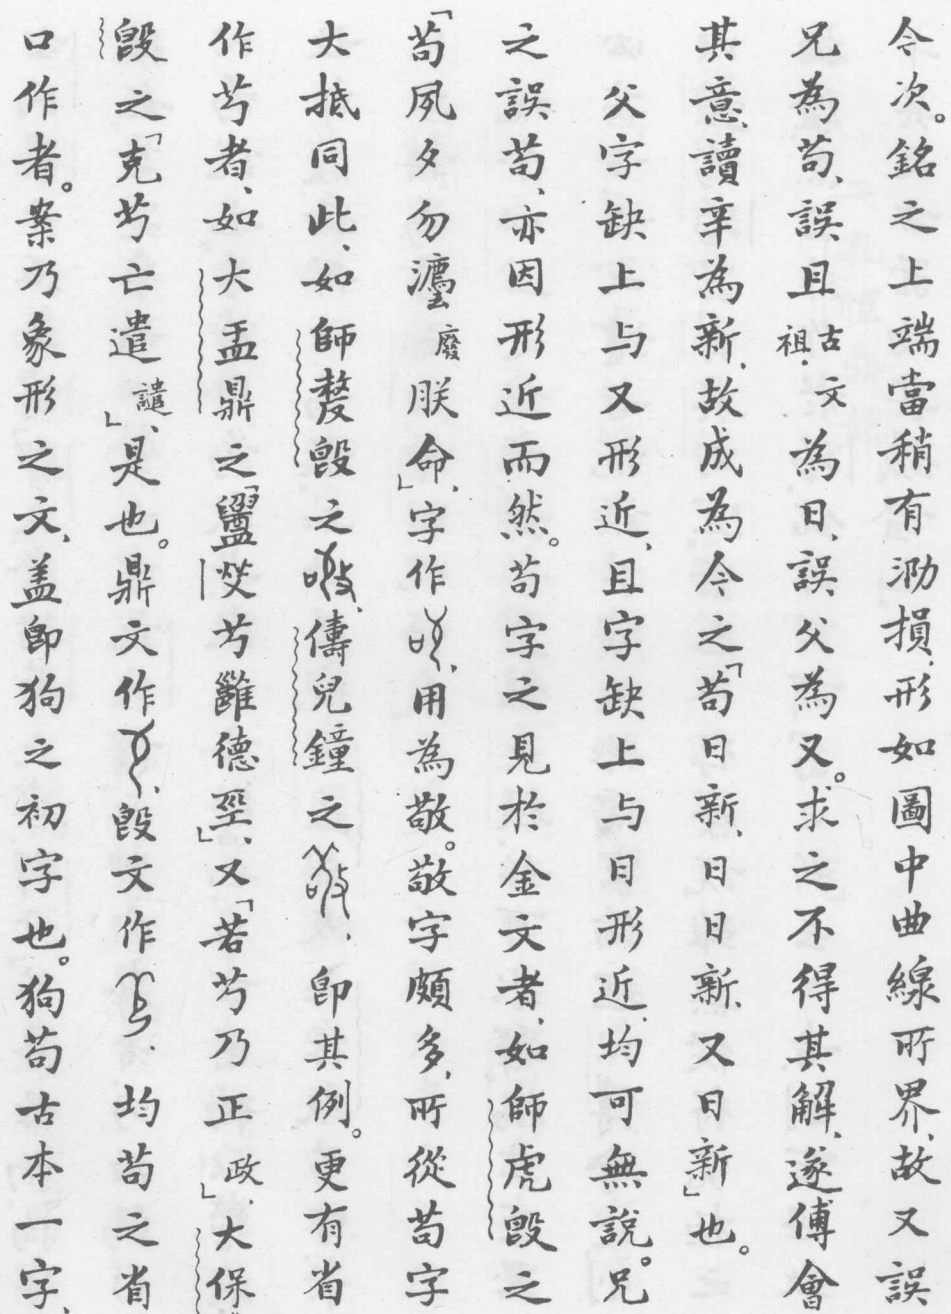 令次。銘之上端當稍有泐損,形如圖中曲線所界,故又誤
兄為苟、誤且古文祖、為日、誤父為又。求之不得其解、遂傅會
其意、讀辛為新、故成為今之「苟日新、日日新、又日新」也。
父字缺上与又形近、且字缺上与日形近、均可無說。兄
之誤苟、亦因形近而然。苟字之見於金文者、如師虎𣪘之
「苟夙夕勿灋廢朕命」、字作、用為敬。敬字頗多、所從苟字
大抵同此、如師𣪘之、儔兒鐘之、即其例。更有省
作芍者、如大盂鼎之「芍雝德巠」、又「若芍乃正政」、大保
𣪘之「克芍亡遣譴」、是也。鼎文作、𣪘文作、均苟之省
口作者。案乃象形之文、盖即狗之初字也。狗苟古本一字、